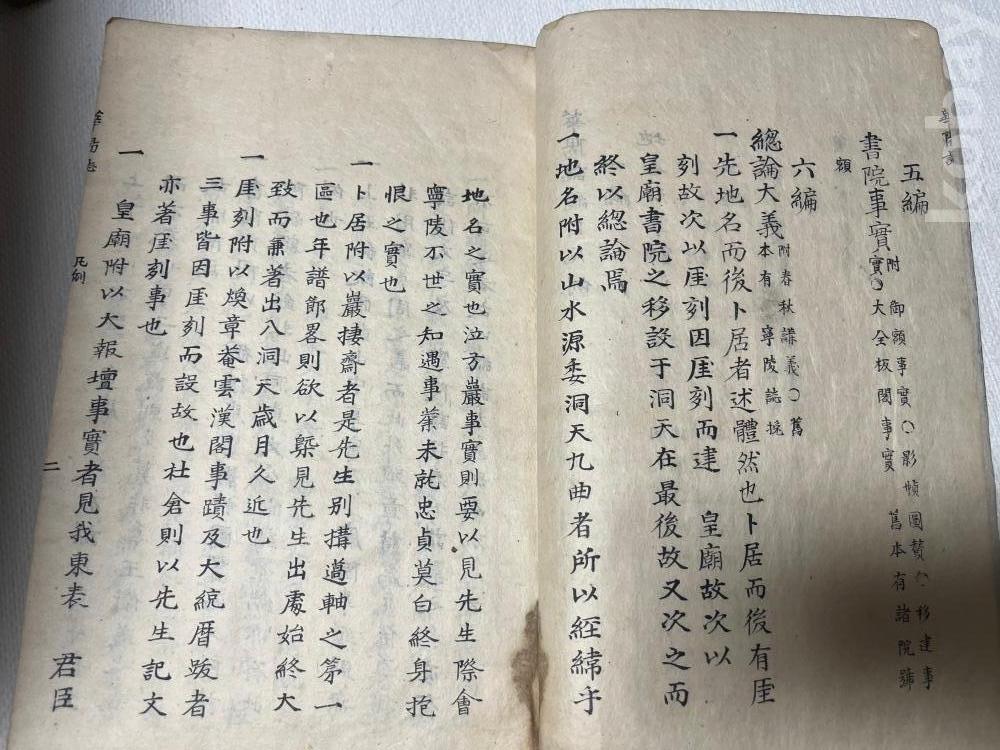 五編
書院事實附 御額事實○影幀圖贊○移建事
實○大全板閣事實 舊本有諸院號
額
六編
總論大義附春秋講義○舊
本有 寧陵誌採
一先地名而後卜居者述體然也卜居而後有厓
刻故次以厓刻因厓刻而建 皇廟故次以
皇廟書院之移設于洞天在最後故又次之而
終以總論焉
一地名附以山水源委洞天九曲者所以經緯乎
地名之實也泣方巖事實則要以見先生際會
寧陵不世之知遇事業未就忠貞莫白終身抱
恨之實也
一卜居附以巖捿齋者是先生別搆薖軸之第一
區也年譜節畧則欲以槩見先生出處始終大
致而兼著出八洞天歲月久近也
一厓刻附以煥章菴雲漢閣事蹟及大統曆跋者
三事皆因厓刻而設故也社倉則以先生記文
亦著厓刻事也
一 皇廟附以大報壇事實者見我東表 君臣
華陽志
凡例
二